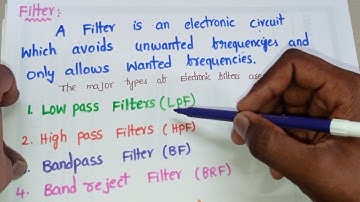 Filter:
A Filter is an electronic circuit
Which avoids unwanted frequencies and
only allows Wanted frequencies.
The major types of Electronic filters are
1. Low pass Filters (LPF)
2. High pass Filters (HPF)
3. Bandpass Filter (BF)
4. Band reject Filter (BRF)